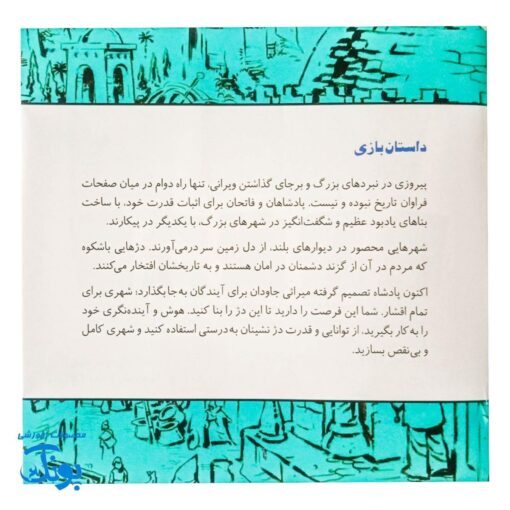 داستان بازی
پیروزی در نبردهای بزرگ و برجای گذاشتن ویرانی، تنها راه دوام در میان صفحات
فراوان تاریخ نبوده و نیست. پادشاهان و فاتحان برای اثبات قدرت خود، با ساخت
بناهای یادبود عظیم و شگفت‌انگیز در شهرهای بزرگ، با یکدیگر در پیکارند.
شهرهایی محصور در دیوارهای بلند، از دل زمین سر درمی‌آورند. دژهایی باشکوه
که مردم در آن از گزند دشمنان در امان هستند و به تاریخشان افتخار می‌کنند.
اکنون پادشاه تصمیم گرفته میراثی جاودان برای آیندگان به‌جا بگذارد؛ شهری برای
تمام اقشار. شما این فرصت را دارید تا این دژ را بنا کنید. هوش و آینده‌نگری خود
را به کار بگیرید، از توانایی و قدرت دژنشینان به‌درستی استفاده کنید و شهری کامل
و بی‌نقص بسازید.